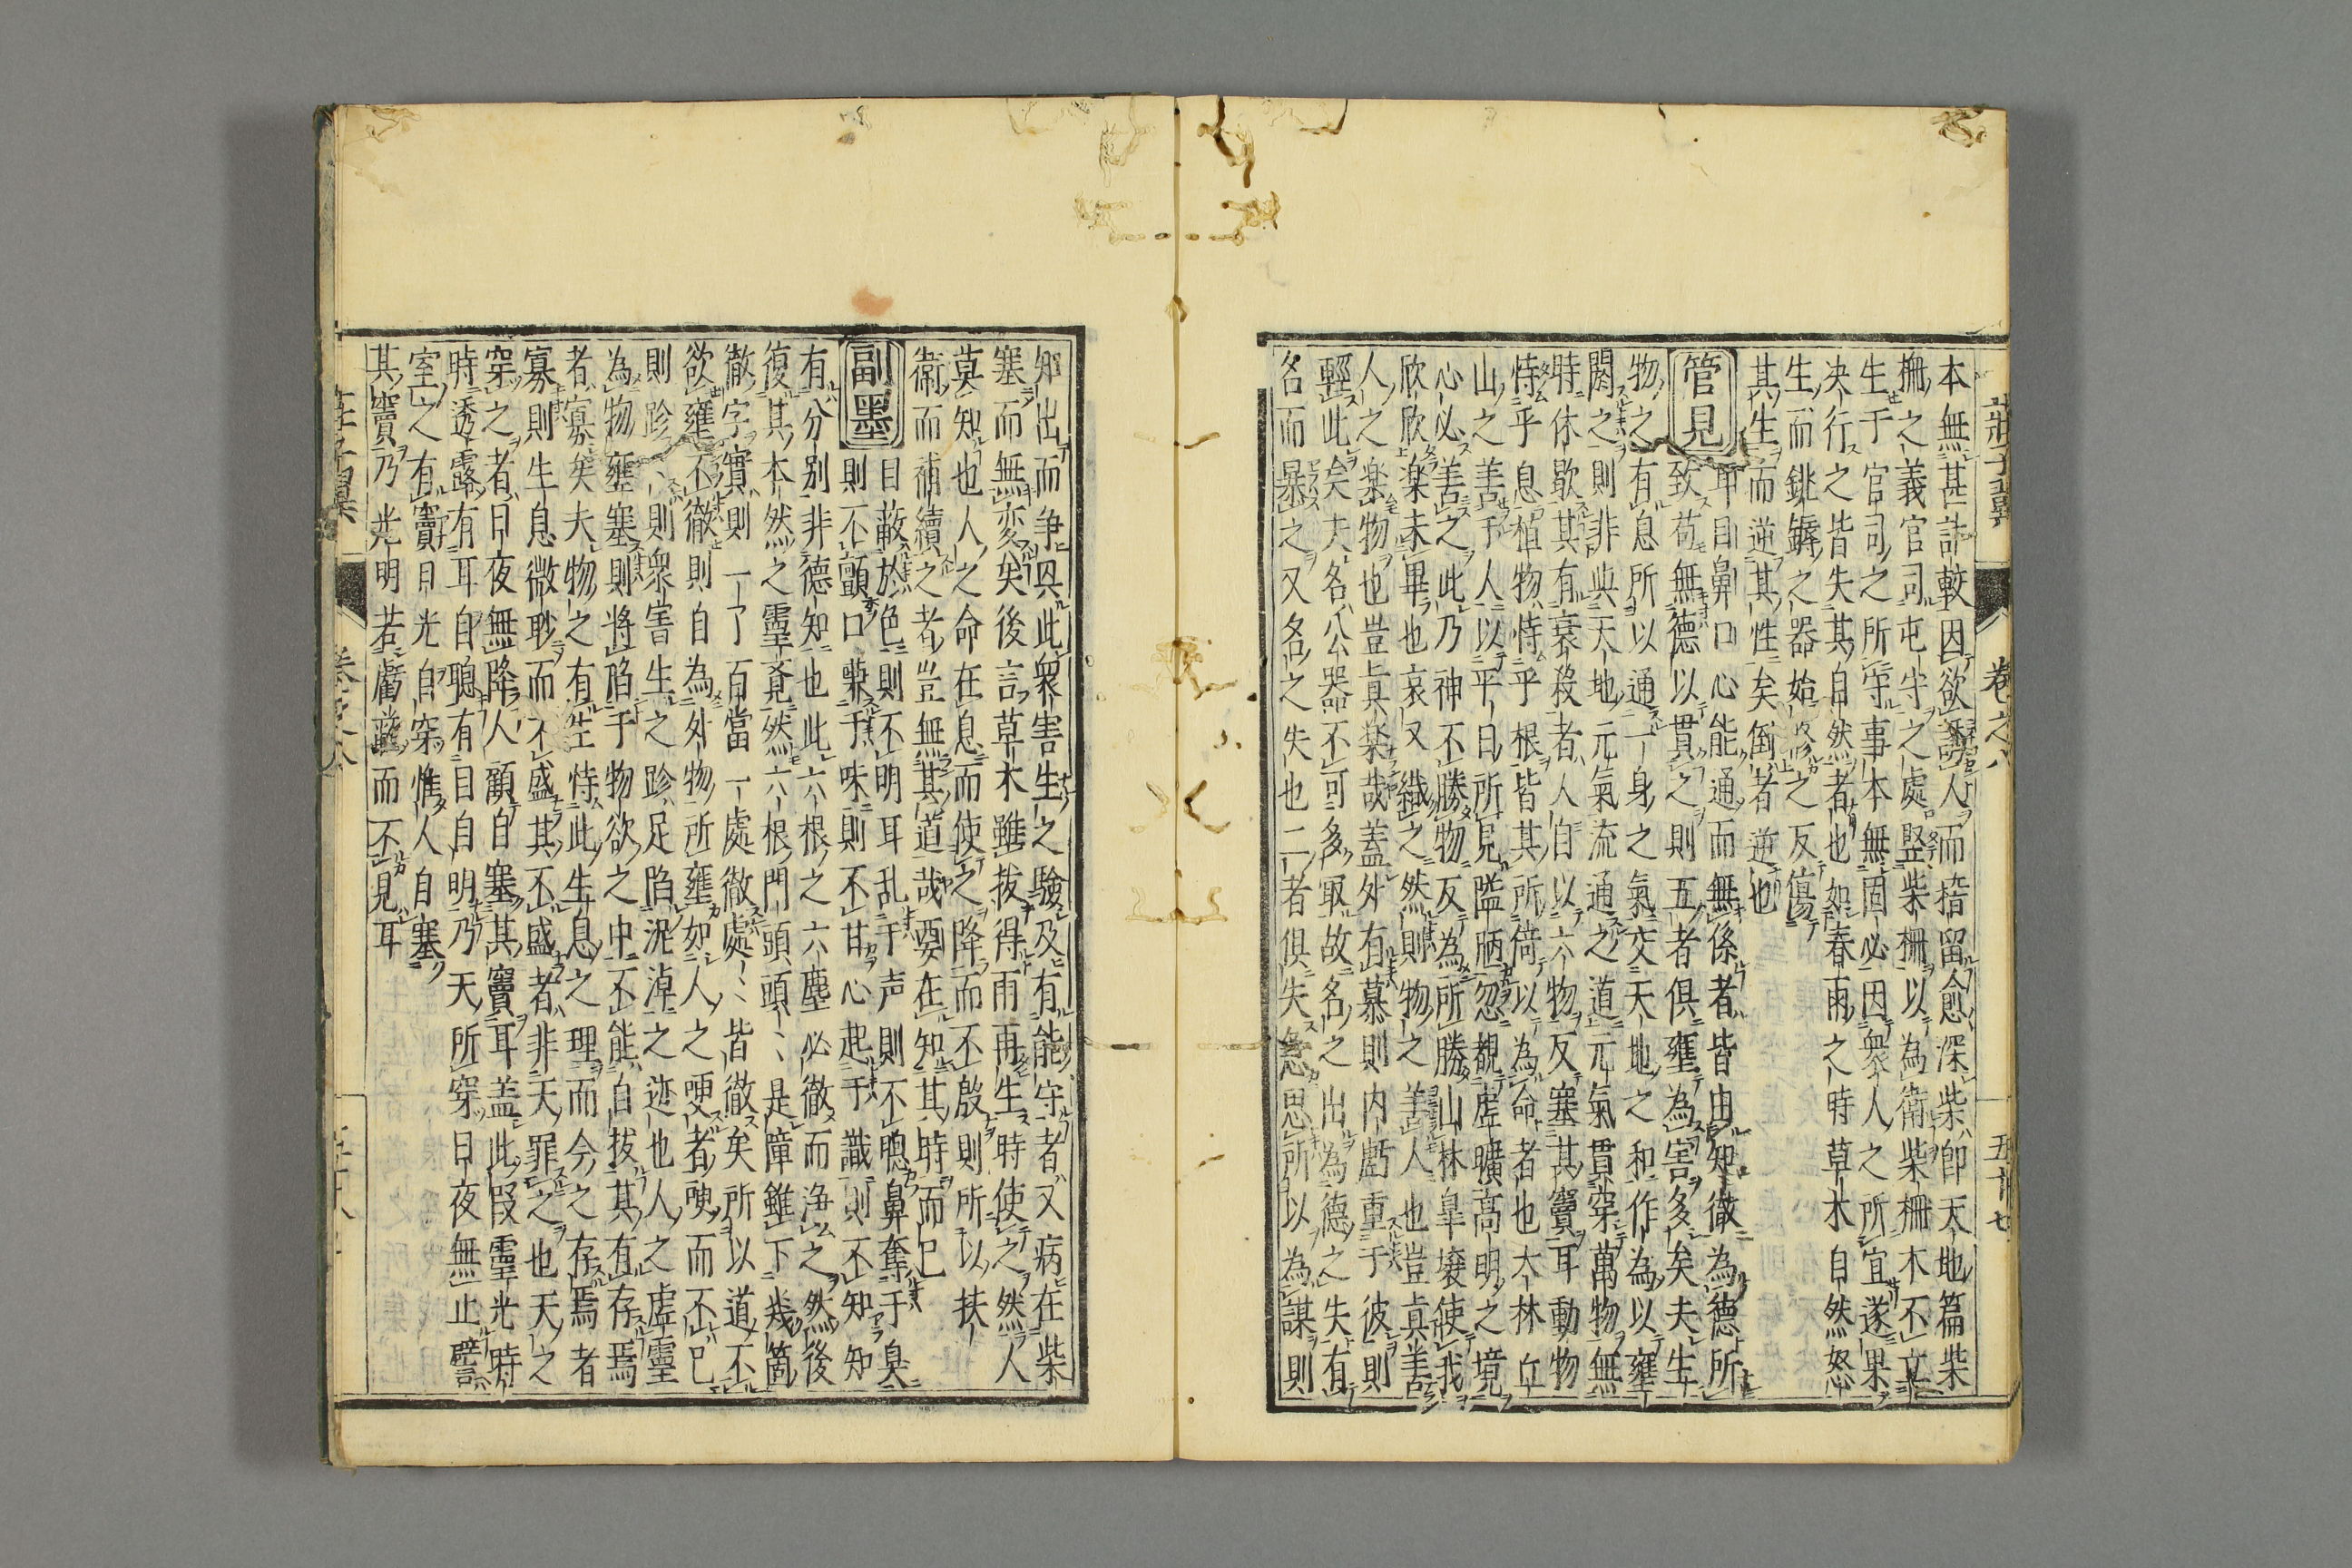 莊子翼 卷之八 五十七
本無甚計較因欲人而揞留愈深柴即天地篇柴
柵之義官司屯守之處竪柴柵以為衛柴柵木不立
生于官司之所守事本無固必因衆人之所宜遂果
决行之皆失其自然者也如春雨之時草木自然怒
生而銚鎒之器始修之反傷
其生而逆其性矣倒者逆也
管見
耳目鼻口心能通而無係者皆由知徹為德所
致苟無德以貫之則五者俱壅為害多矣夫生
物之有息所以通一身之氣交天地之和作為以壅
閼之則非與天地元氣流通之道元氣貫穿萬物無
時休歇其有衰殺者人自以六物反塞其竇耳動物
恃乎息植物恃乎根皆其所倚以為命者也大林丘
山之善于人以平日所見隘陋忽覩虚曠高明之境
心必善之此乃神不勝物反為所勝山林皐壤使我
欣欣樂未畢也哀又繼之然則物之善人也豈真善
人之楽物也豈真楽哉蓋外有慕則内虧重于彼則
輕此矣夫名公器不可多取故名之出為德之失有
名而暴之又名之失也二者俱失急思所以為謀則
知出而争具此衆害生之驗及有能守者又病在柴
塞而無変矣後言草木雖拔得雨再生時使之然人
莫知也人之命在息而使之降而不殷則所以扶
衛而補續之者豈無其道哉要在知其時而已
副墨
目蔽於色則不明耳乱于声則不聰鼻奪于臭
則不顫口藥于味則不甘心起于識則不知知
有分别非德知也此六根之六塵必徹而浄之然後
復其本然之靈竟然六根門頭頭頭是障雖下幾箇
徹字實則一了百當一處徹處處皆徹矣所以道不
欲壅不徹則自為外物所壅如人之哽者哽而不已
則跈跈則衆害生之跈足陷泥淖之迹也人之虚靈
為物壅塞則將陷于物欲之中不能自拔其有存焉
者寡矣夫物之有生恃此生息之理而今之存焉者
寡則生息微眇而不盛其不盛者非天罪之也天之
穿之者日夜無降人顧自塞其竇耳盖此段靈光時
時透露有耳自聰有目自明乃天所穿日夜無止譬
室之有竇日光自穿惟人自塞
其竇乃光明若虧蔽而不見耳